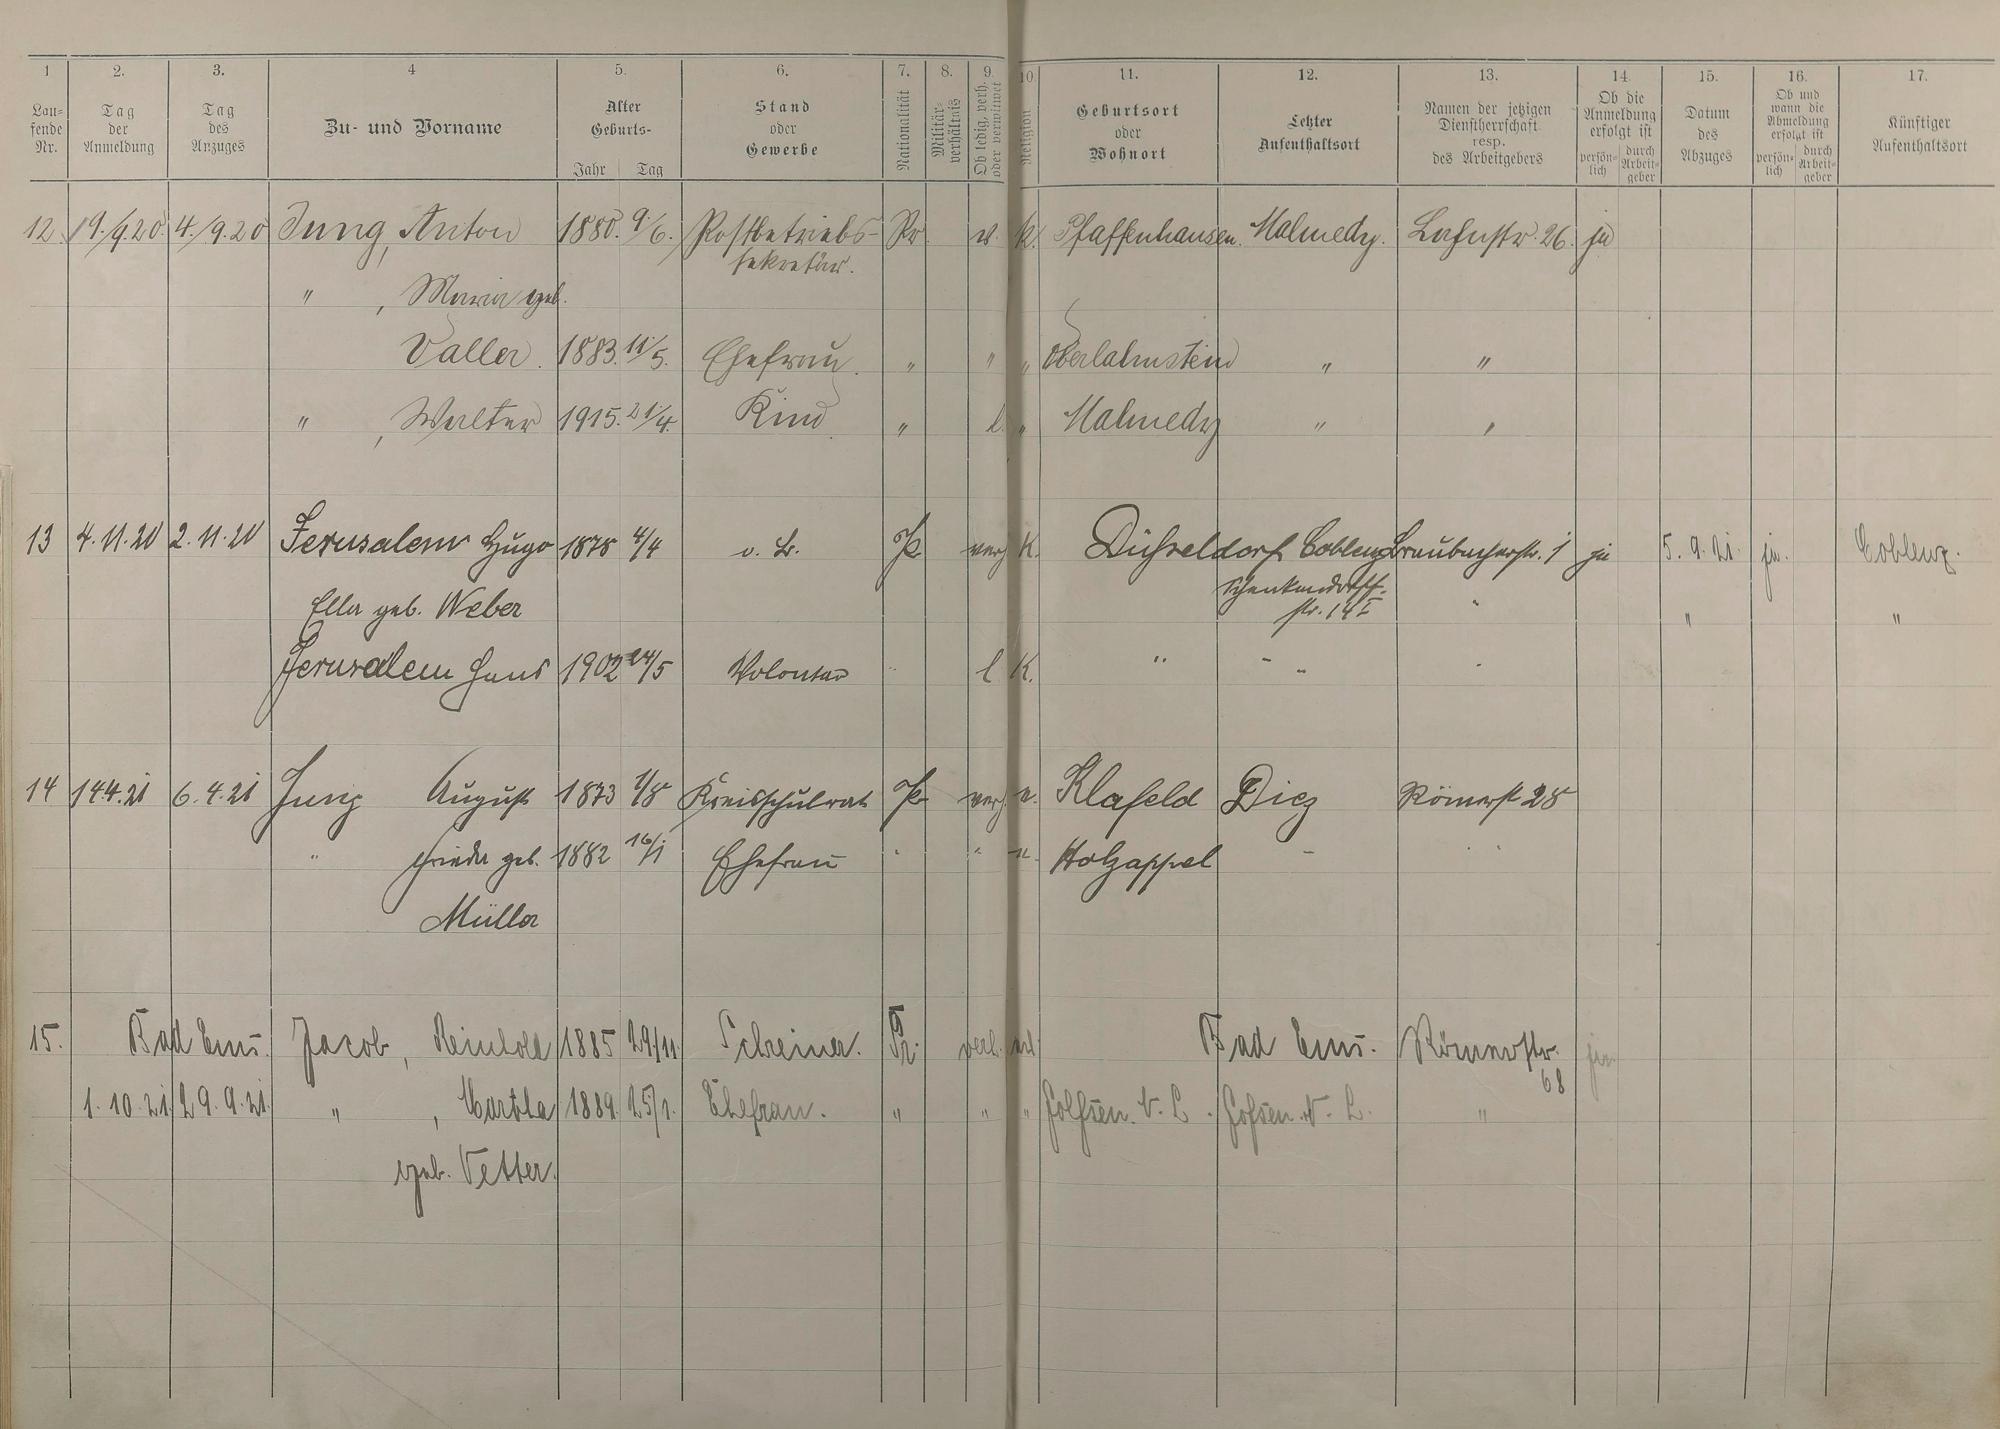 1 2. 3. 4 5. 6. 7. 8. 9. 10. 11. 12. 13. 14. 15. 16. 17.
Lau-
fende
Nr.
Tag
der
Anmeldung
Tag
des
Anzuges
Zu- und Vorname
Alter
Geburts-
Jahr Tag
Stand
oder
Gewerbe
Nationalität
Militär-
verhältnis
Ob ledig, verh.
oder verwitwet
Religion
Geburtsort
oder
Wohnort
Letzter
Aufenthaltsort
Namen der jetzigen
Dienstherrschaft
resp.
des Arbeitgebers
Ob die
Anmeldung
erfolgt ist
persön-
lich
durch
Arbeit-
geber
Datum
des
Abzuges
Ob und
wann die
Abmeldung
erfolgt ist
persön-
lich
durch
Arbeit-
geber
Künftiger
Aufenthaltsort
12 19./9.20. 4./9.20 Jung, Anton 1880. 9/6. Postbetriebs- Pr. v. k. Pfaffenhausen. Malmedy. Lahnstr. 26. ja
sekretär.
" , Maria geb.
Valler. 1883. 11/5. Ehefrau. " " " Oberlahnstein " "
" , Walter 1915. 21/4. Kind " l. " Malmedy " "
13 4.11.20 2.11.20 Jerusalem Hugo 1878 4/4 Pr. verh K. Düsseldorf Coblenz Braubacherstr. 1 ja 5.9.21. ja. Coblenz.
Schenkendorff-
Ella geb. Weber str. 14 I " " "
Jerusalem Hans 1902 24/5 Volontär " l K. " " "
14 14.4.21 6.4.21 Jung August 1873 1/8 Kreisschulrat Pr verh. e. Klafeld Diez Römerst 28
" Frieda geb. 1882 16/1 Ehefrau " " " Holzappel " "
Müller
15. Bad Ems. Jacob, Reinhold 1885 29/11. Schreiner. Pr. verh. Bad Ems. Römerstr. ja
68
1.10.21. 29.9.21. " , Martha 1889. 25/1. Ehefrau. " " " "
geb. Vetter.